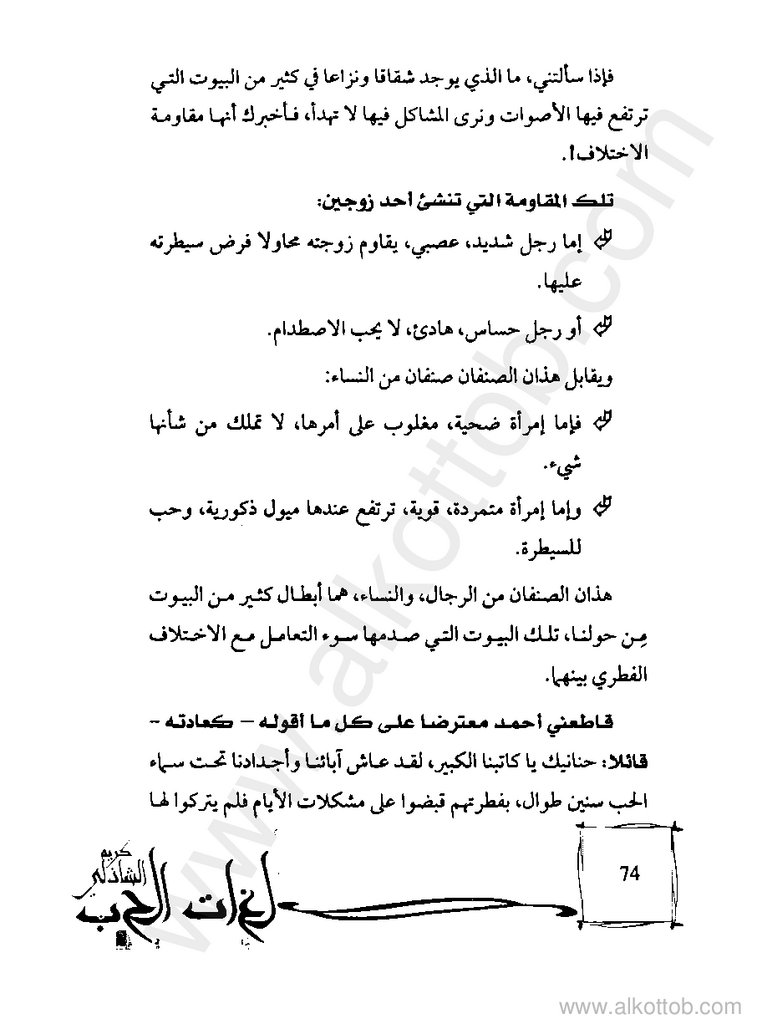 فإذا سألتني، ما الذي يوجد شقاقا ونزاعا في كثير من البيوت التي
ترتفع فيها الأصوات ونرى المشاكل فيها لا تهدأ، فأخبرك أنها مقاومة
الاختلاف!.
تلك المقاومة التي تنشئ أحد زوجين:
إما رجل شديد، عصبي، يقاوم زوجته محاولا فرض سيطرته
عليها.
أو رجل حساس، هادئ، لا يحب الاصطدام.
ويقابل هذان الصنفان صنفان من النساء:
فإما إمرأة ضحية، مغلوب على أمرها، لا تملك من شأنها
شيء.
وإما إمرأة متمردة، قوية، ترتفع عندها ميول ذكورية، وحب
للسيطرة.
هذان الصنفان من الرجال، والنساء، هما أبطال كثير من البيوت
مِن حولنا، تلك البيوت التي صدمها سوء التعامل مع الاختلاف
الفطري بينهما.
قاطعني أحمد معترضا على كل ما أقوله – كعادته –
قائلا: حنانيك يا كاتبنا الكبير، لقد عاش آبائنا وأجدادنا تحت سماء
الحب سنين طوال، بفطرتهم قبضوا على مشكلات الأيام فلم يتركوا لها
74
كريم
الشاذلي
لغات الحب
www.alkottob.com
www.alkottob.com